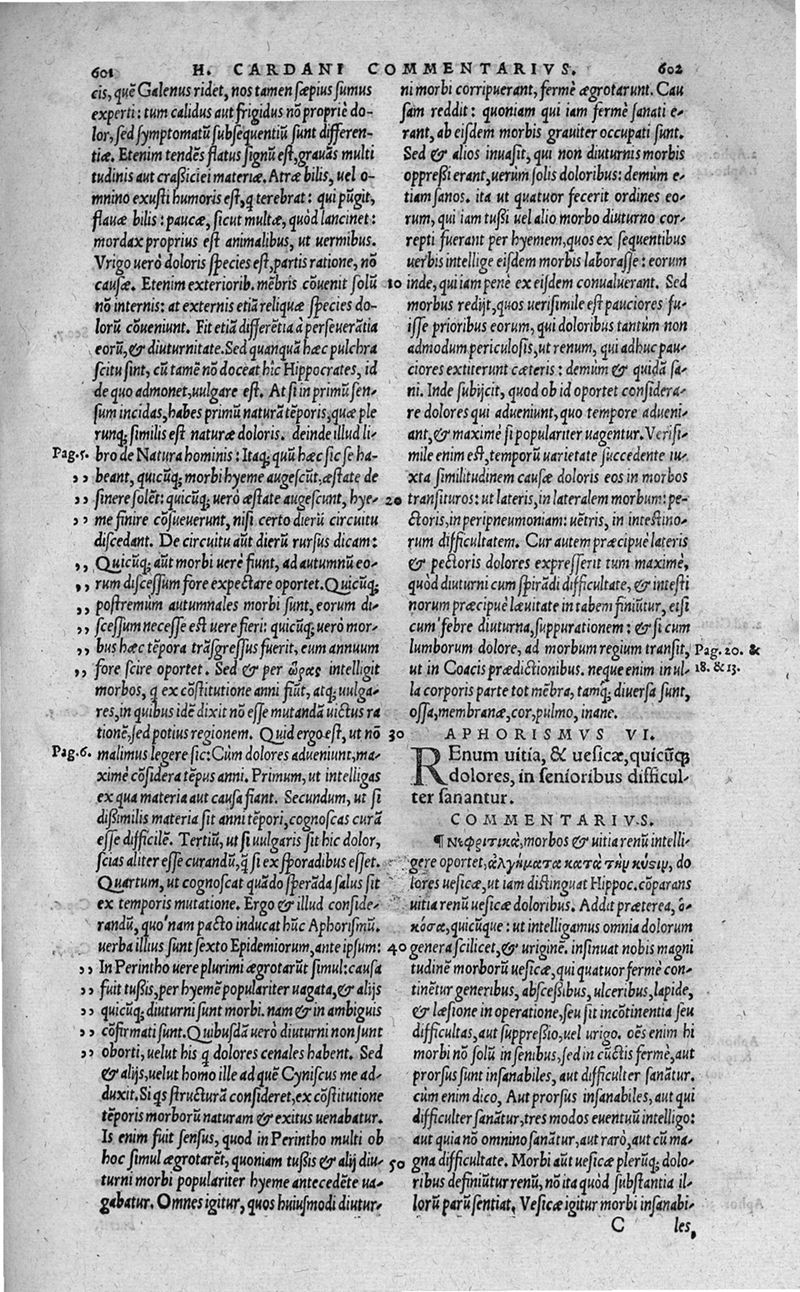 601 H. CARDANI COMMENTARIVS. 602
cis, quẽ Galenus ridet, nos tamen sæpius sumus
experti: tum calidus aut frigidus nõ propriè do-
lor, sed symptomatũ subsequentiũ sunt differen-
tiæ. Etenim tendẽs flatus signũ est, grauãs multi
tudinis aut crassiciei materiæ. Atræ bilis, uel o-
mnino exusti humoris est, q terebrat: qui pũgit,
flauæ bilis: paucæ, sicut multæ, quòd lancinet:
mordax proprius est animalibus, ut uermibus.
Vrigo uerò doloris species est, partis ratione, nõ
causæ. Etenim exteriorib. mẽbris cõuenit solũ
nõ internis: at externis etiã reliquæ species do-
lorũ cõueniunt. Fit etiã differẽtia à perseuerãtia
eorũ, & diuturnitate. Sed quanquã hæc pulchra
scitu sint, cũ tamẽ nõ doceat hîc Hippocrates, id
de quo admonet, uulgare est. At si in primũ sen-
sum incidas, habes primũ naturã tẽporis, quæ ple
runq; similis est naturæ doloris. deinde illud li-
Pag. 5. bro de Natura hominis: Itaq; quũ hæc sic se ha-
,, beant, quicũq; morbi hyeme augescũt, æstate de
,, sinere solẽt: quicũq; uerò æstate augescunt, hye-
,, me finire cõsueuerunt, nisi certo dierũ circuitu
discedant. De circuitu aũt dierũ rursus dicam:
,, Quicũq; aũt morbi uere fiunt, ad autumnũ eo-
,, rum discessum fore expectare oportet. Quicũq;
,, postremùm autumnales morbi sunt, eorum di-
,, scessum necesse est uere fieri: quicũq; uerò mor-
,, bus hæc tẽpora trãsgressus fuerit, eum annuum
,, fore scire oportet. Sed & per ὥρας intelligit
morbos, q ex cõstitutione anni fiũt, atq; uulga-
res, in quibus idẽ dixit nõ esse mutandã uictus ra
tionẽ, sed potius regionem. Quid ergo est, ut nõ
Pag. 6. malimus legere sic: Cùm dolores adueniunt, ma-
ximè cõsidera tẽpus anni. Primum, ut intelligas
ex qua materia aut causa fiant. Secundum, ut si
dissimilis materia sit anni tẽpori, cognoscas curã
esse difficilẽ. Tertiũ, ut si uulgaris sit hic dolor,
scias aliter esse curandũ, q̃ si ex sporadibus esset.
Quartum, ut cognoscat quãdo sperãda salus sit
ex temporis mutatione. Ergo & illud conside-
randũ, quo'nam pacto inducat hũc Aphorismũ.
uerba illius sunt sexto Epidemiorum, ante ipsum:
,, In Perintho uere plurimi ægrotarũt simul: causa
,, fuit tussis, per hyemẽ populariter uagata, & alijs
,, quicũq; diuturni sunt morbi. nam & in ambiguis
,, cõfirmati sunt. Quibusdã uerò diuturni non sunt
,, oborti, uelut his q dolores cenales habent. Sed
& alijs, uelut homo ille ad quẽ Cyniscus me ad-
duxit. Si qs structurã consideret, ex cõstitutione
tẽporis morborũ naturam & exitus uenabatur.
Is enim fuit sensus, quod in Perintho multi ob
hoc simul ægrotarẽt, quoniam tussis & alij diu-
turni morbi populariter hyeme antecedẽte ua-
gabatur. Omnes igitur, quos huiusmodi diutur-
ni morbi corripuerant, fermè ægrotarunt. Cau
sam reddit: quoniam qui iam fermè sanati e-
rant, ab eisdem morbis grauiter occupati sunt.
Sed & alios inuasit, qui non diuturnis morbis
oppressi erant, uerùm solis doloribus: demùm e-
tiam sanos. ita ut quatuor fecerit ordines eo-
rum, qui iam tussi uel alio morbo diuturno cor-
repti fuerant per hyemem, quos ex sequentibus
uerbis intellige eisdem morbis laborasse: eorum
10 inde, qui iam penè ex eisdem conualuerant. Sed
morbus redijt, quos uerisimile est pauciores fu-
isse prioribus eorum, qui doloribus tantum non
admodum periculosis, ut renum, qui adhuc pau-
ciores extiterunt cæteris: demùm & quidã sa-
ni. Inde subijcit, quod ob id oportet considera-
re dolores qui adueniunt, quo tempore adueni-
ant, & maximè si populariter uagentur. Verisi-
mile enim est, temporũ uarietate succedente iu-
xta similitudinem causæ doloris eos in morbos
20 transituros: ut lateris, in lateralem morbum: pe-
ctoris, in peripneumoniam: uẽtris, in intestino-
rum difficultatem. Cur autem præcipuè lateris
& pectoris dolores expresserit tum maximè,
quòd diuturni cum spirãdi difficultate, & intesti
norum præcipuè læuitate in tabem finiũtur, etsi
cum febre diuturna, suppurationem: & si cum
lumborum dolore, ad morbum regium transit, Pag. 20. &
ut in Coacis prædictionibus. neque enim in ul- 18. & 13.
la corporis parte tot mẽbra, tamq; diuersa sunt,
ossa, membranæ, cor, pulmo, inane.
30 APHORISMVS VI.
REnum uitia, & uesicæ, quicũq;
dolores, in senioribus difficul-
ter sanantur.
COMMENTARIVS.
¶ Νεφριτικὰ, morbos & uitia renũ intelli-
gere oportet, ἀλγήματα κατὰ τὴν κύστιν, do
lores uesicæ, ut iam distinguat Hippoc. cõparans
uitia renũ uesicæ doloribus. Addit præterea, ὁ-
κόσα, quicũque: ut intelligamus omnia dolorum
40 genera scilicet, & originẽ. insinuat nobis magni
tudinẽ morborũ uesicæ, qui quatuor fermè con-
tinẽtur generibus, abscessibus, ulceribus, lapide,
& læsione in operatione, seu sit incõtinentia seu
difficultas, aut suppressio, uel urigo. oẽs enim hi
morbi nõ solũ in senibus, sed in cũctis fermè, aut
prorsus sunt insanabiles, aut difficulter sanãtur.
cùm enim dico, Aut prorsus insanabiles, aut qui
difficulter sanãtur, tres modos euentuũ intelligo:
aut quia nõ omnino sanãtur, aut rarò, aut cũ ma-
50 gna difficultate. Morbi aũt uesicæ plerũq; dolo-
ribus definiũtur renũ, nõ ita quòd substantia il-
lorũ parũ sentiat. Vesicæ igitur morbi insanabi-
C les,